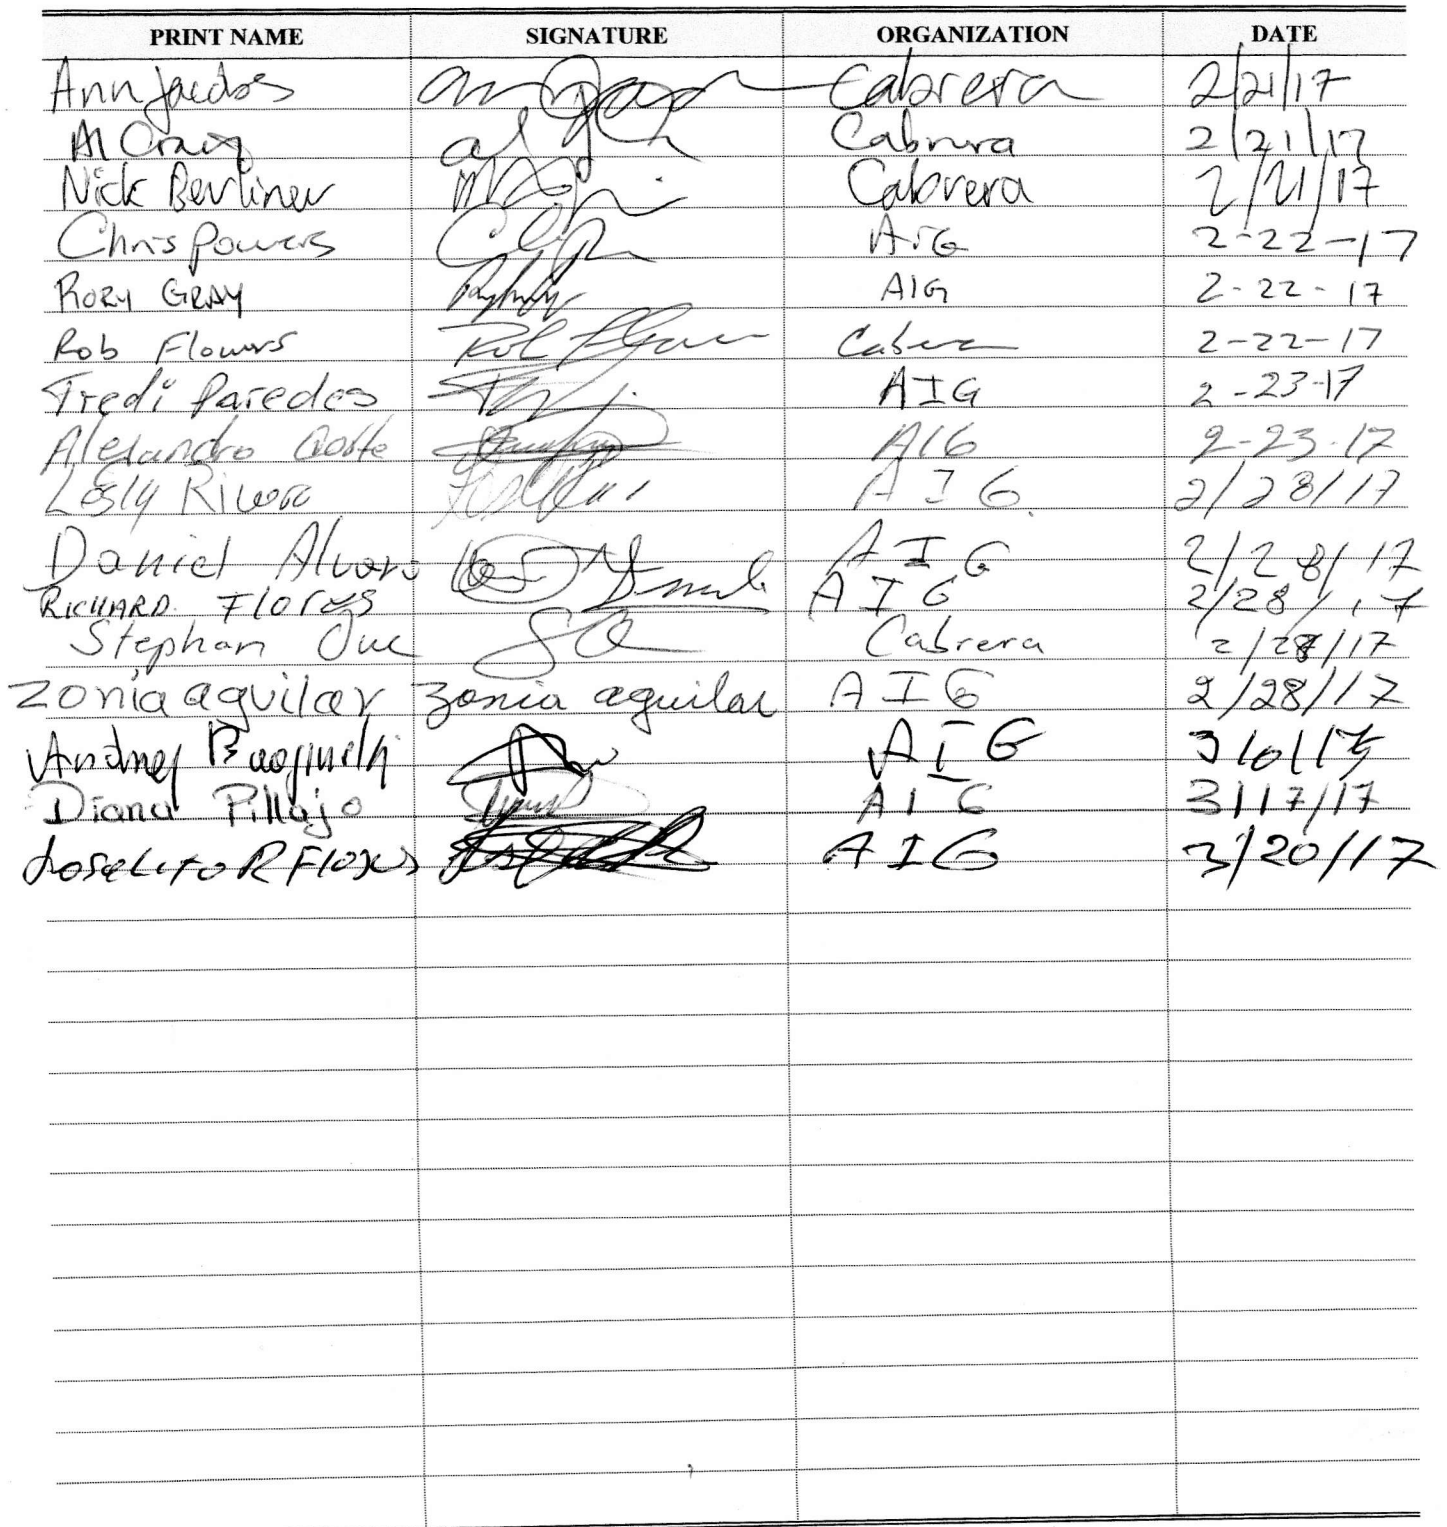 PRINT NAME SIGNATURE ORGANIZATION DATE
Ann Cabrera 2/21/17
Al Cabrera 2/21/17
Nick Berliner Cabrera 2/21/17
Chris Powers AIG 2-22-17
RORY GRAY AIG 2-22-17
Rob Flowers Rob 2-22-17
Fredi Paredes AIG 2-23-17
Alejandro AIG 2-23-17
Lesly Rivera AIG 2/28/17
Daniel AIG 2/28/17
RICHARD Flores AIG 2/28/17
Stephan Cabrera 2/28/17
Zonia aguilar zonia aguilar AIG 2/28/17
AIG
Diana Pillajo AIG 3/17/17
Joselito R Flores AIG 3/20/17